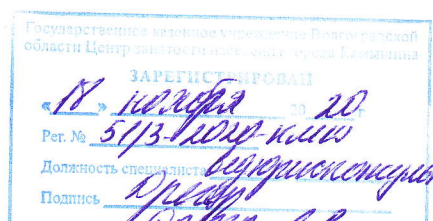 Государственное казенное учреждение Волгоградской
области Центр занятости населения города Камышина
ЗАРЕГИСТРИРОВАН
« 18 » ноября 20 20 г.
Рег. № 51/3-2020-КМЮ
Должность специалиста ведюрисконсульт
Подпись